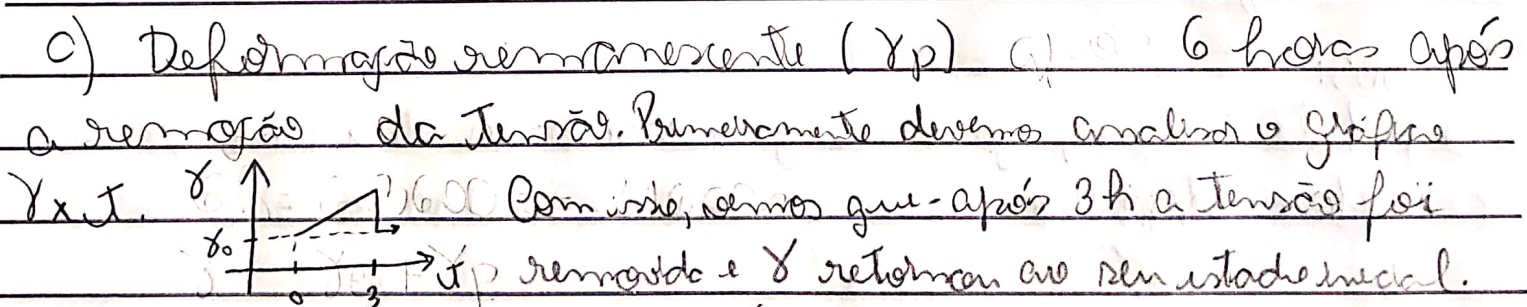 c) Deformação remanescente (γp) 6 horas após
a remoção da tensão. Primeiramente devemos analisar o gráfico
γ x t. γ Com isso, vemos que após 3h a tensão foi
γ₀ t removida e γ retornou ao seu estado inicial.
0 3